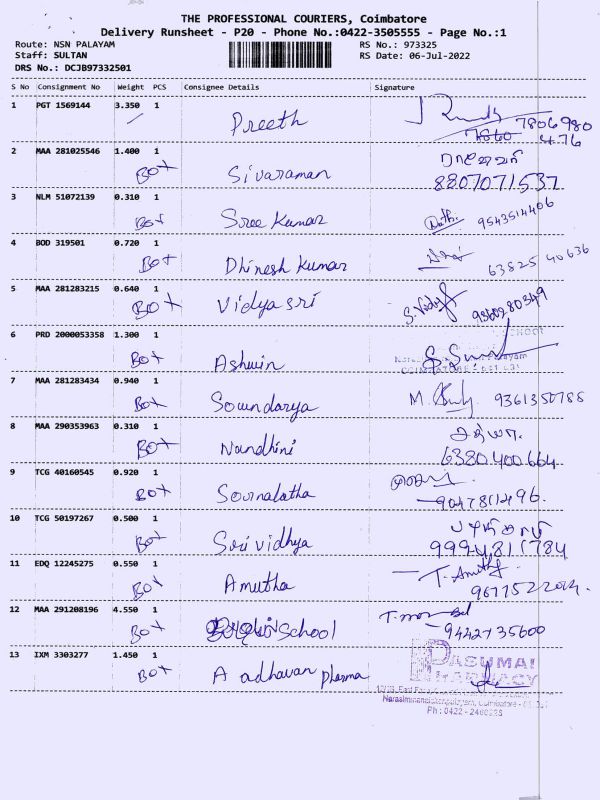 THE PROFESSIONAL COURIERS, Coimbatore
Delivery Runsheet - P20 - Phone No.:0422-3505555 - Page No.:1
Route: NSN PALAYAM RS No.: 973325
Staff: SULTAN RS Date: 06-Jul-2022
DRS No.: DCJB97332501
S No Consignment No Weight PCS Consignee Details Signature
1 PGT 1569144 3.350 1 Preeth 7806980
476
2 MAA 281025546 1.400 1 Box Sivaraman
8807071537
3 NLM 51072139 0.310 1 Box Sree Kumar 9543514406
4 BOD 319501 0.720 1 Box Dhinesh Kumar 63825 40636
5 MAA 281283215 0.640 1 Box Vidyasri 9360280349
6 PRD 2000053358 1.300 1 Box Ashwin
7 MAA 281283434 0.940 1 Box Soundarya 9361350788
8 MAA 290353963 0.310 1 Box Nandhini
6380400664
9 TCG 40160545 0.920 1 Box Sornalatha
9047811496
10 TCG 50197267 0.500 1 Box Sri vidhya
9994811784
11 EDQ 12245275 0.550 1 Box Amutha T. Amutha
12 MAA 291208196 4.550 1 Box School
9442735600
13 IXM 3303277 1.450 1 Box Aadhavan pharma PASUMAI
PHARMACY